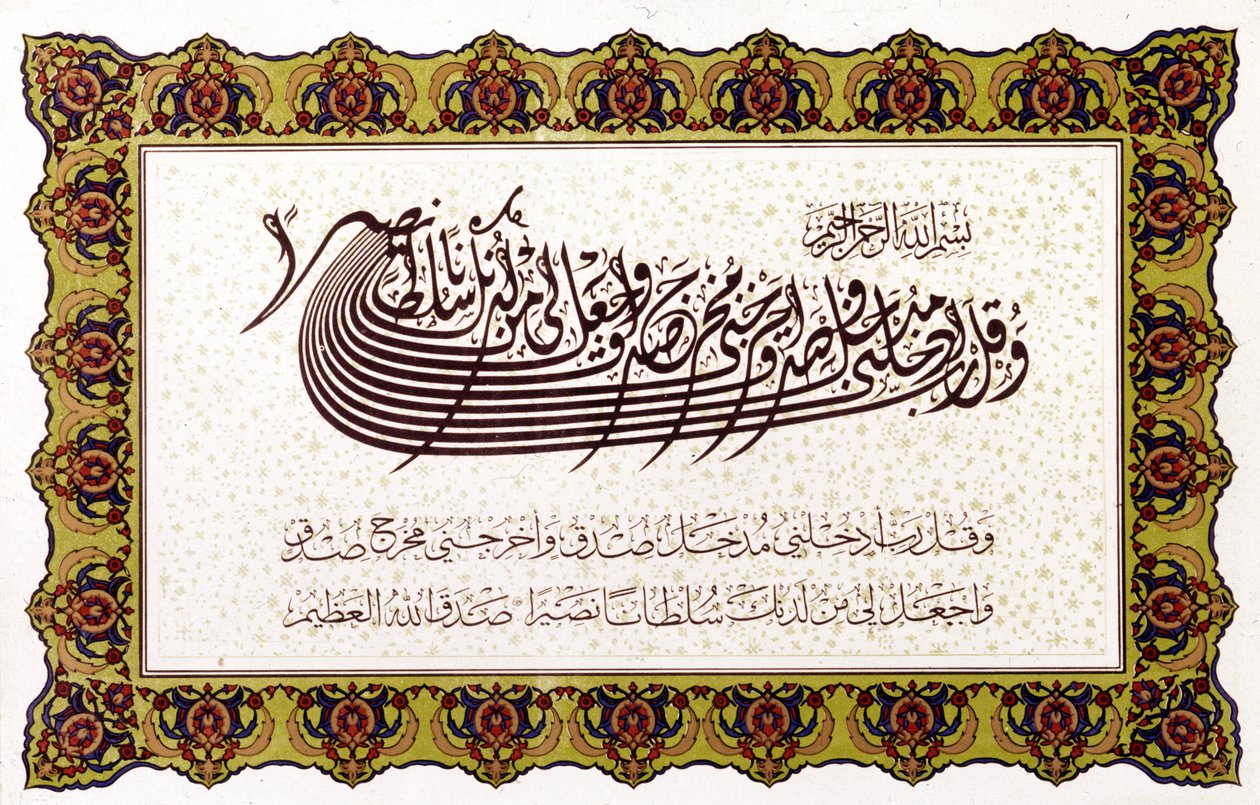 بِسْمِ اللهِ الرَّحْمٰنِ الرَّحِيْمِ
وَقُل رَبِّ أَدْخِلْنِي مُدْخَلَ صِدْقٍ وَأَخْرِجْنِي مُخْرَجَ صِدْقٍ وَاجْعَل لِي مِن لَدُنكَ سُلْطَانًا نَصِيرًا
وَقُل رَبِّ أَدْخِلْنِي مُدْخَلَ صِدْقٍ وَأَخْرِجْنِي مُخْرَجَ صِدْقٍ
وَاجْعَل لِي مِن لَدُنكَ سُلْطَانًا نَصِيرًا صَدَقَ اللهُ العَظِيم